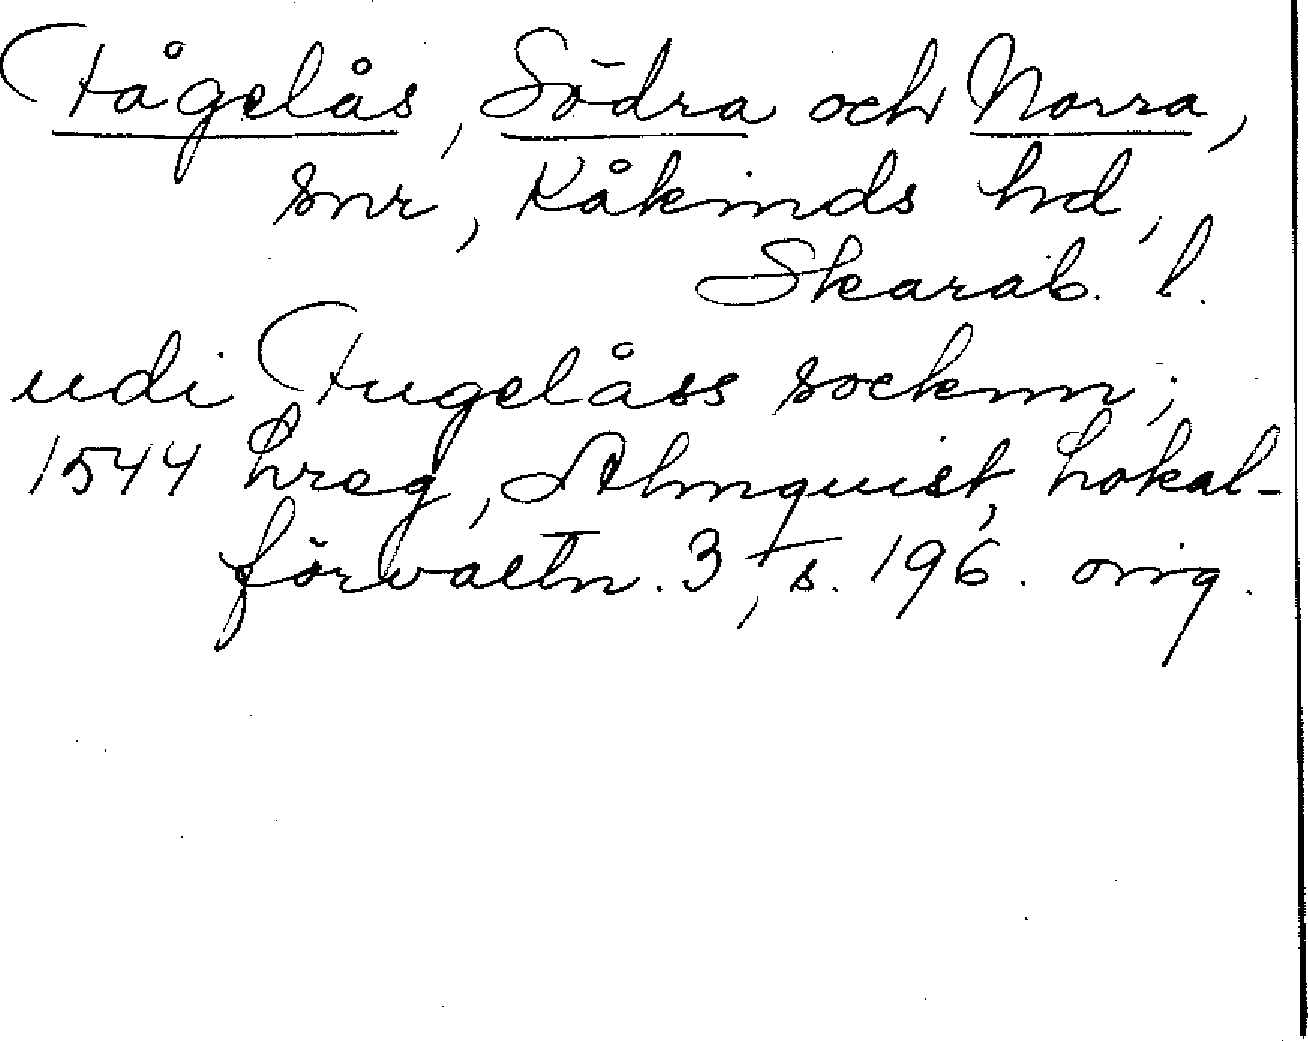 Fågelås, Södra och Norra,
snr, Kåkinds hd,
Skarab. l.
udi Fugelåss socknn;
1544 hreg, Almquist, Lokal-
förvaltn. 3, s. 196. orig.